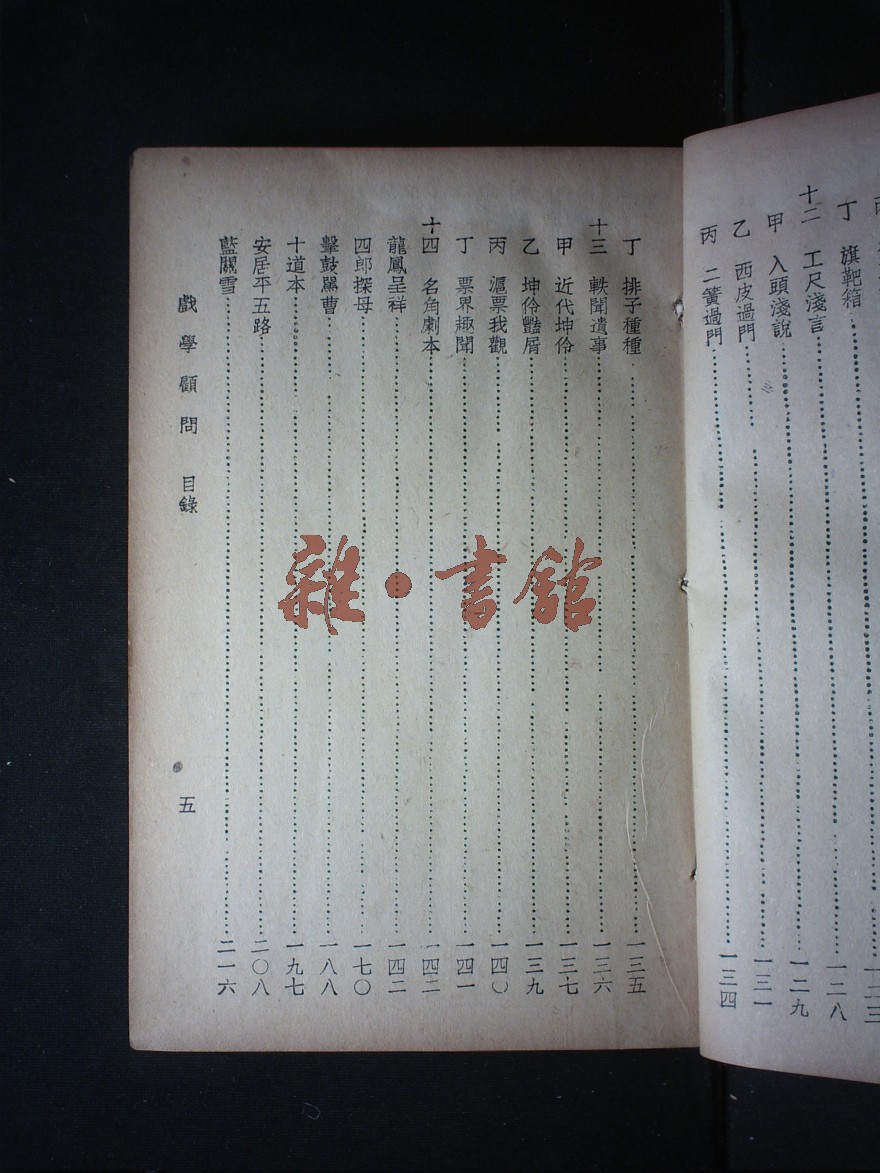 丁 旗靶箱 一二八
十二 工尺淺言 一二九
甲 入頭淺說 一三一
乙 西皮過門
丙 二簧過門 一三四
丁 排子種種 一三五
十三 軼聞遺事 一三六
甲 近代坤伶 一三七
乙 坤伶豔屑 一三九
丙 滬票我觀 一四〇
丁 票界趣聞 一四一
十四 名角劇本 一四二
龍鳳呈祥 一四二
四郎探母 一七〇
擊鼓罵曹 一八八
十道本 一九七
安居平五路 二〇八
藍關雪 二一六
戲學顧問 目錄 五
雜·書館